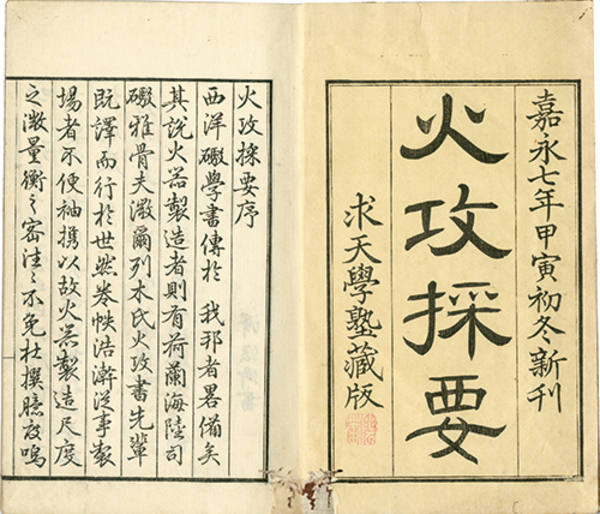 嘉永七年甲寅初冬新刊
火攻採要
求天學塾藏版
火攻採要序
西洋礮學書傳於 我邦者畧備矣
其説火器製造者則有荷蘭海陸司
礮雅骨夫激爾列木氏火攻書先輩
既譯而行於世然卷帙浩瀚從事製
場者不便袖携以故火器製造尺度
之激量衡之密往々不免杜撰臆度嗚